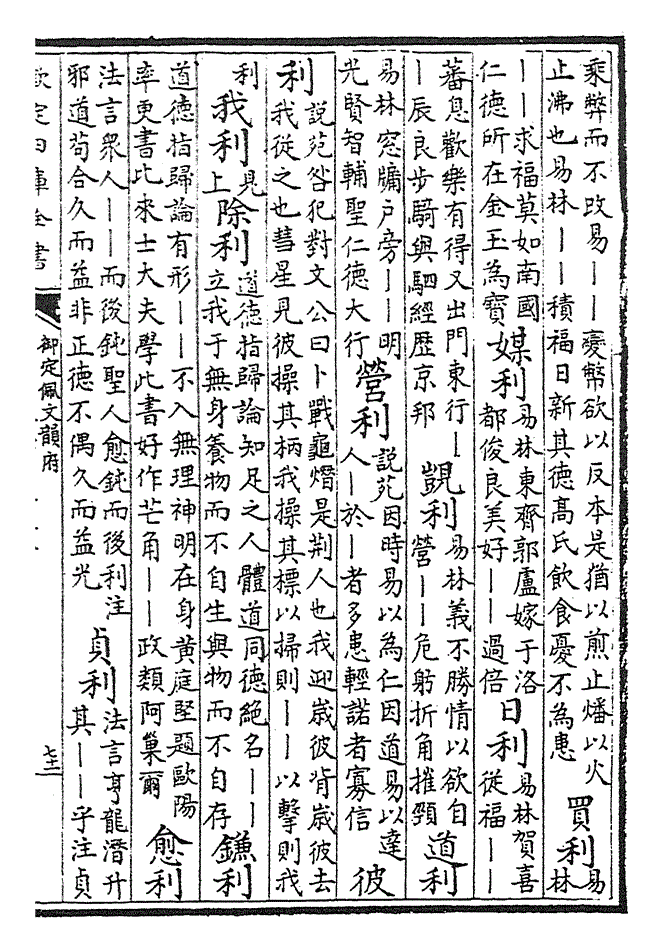 乘弊而不改易——變幣欲以反本是猶以煎止燔以火
止沸也易林——積福日新其德高氏飲食憂不為患
買利
易
林
——求福莫如南國
仁德所在金玉為寶
媒利
易林東齊郭廬嫁于洛
都俊良美好——過倍
日利
易林賀喜
從福——
蕃息歡樂有得又出門東行—
—辰良步騎與駟經歷京邦
覬利
易林義不勝情以欲自
營——危躬折角摧頸
道利
易林窓牖戶旁——明
光賢智輔聖仁德大行
營利
説苑因時易以為仁因道易以達
人—於—者多患輕諾者寡信
彼
利
説苑咎犯對文公曰卜戰龜熸是荆人也我迎歲彼背歲彼去
我從之也彗星見彼操其柄我操其標以掃則——以擊則我
利
我利
見
上
除利
道德指歸論知足之人體道同德絶名——
立我于無身養物而不自生與物而不自存
鐮利
道德指歸論有形——不入無理神明在身黄庭堅題歐陽
率更書此來士大夫學此書好作芒角——政類阿巢爾
愈利
法言衆人——而後鈍聖人愈鈍而後利注
邪道苟合久而益非正德不偶久而益光
貞利
法言亨龍潛升
其——乎注貞
欽定四庫全書
御定佩文韻府